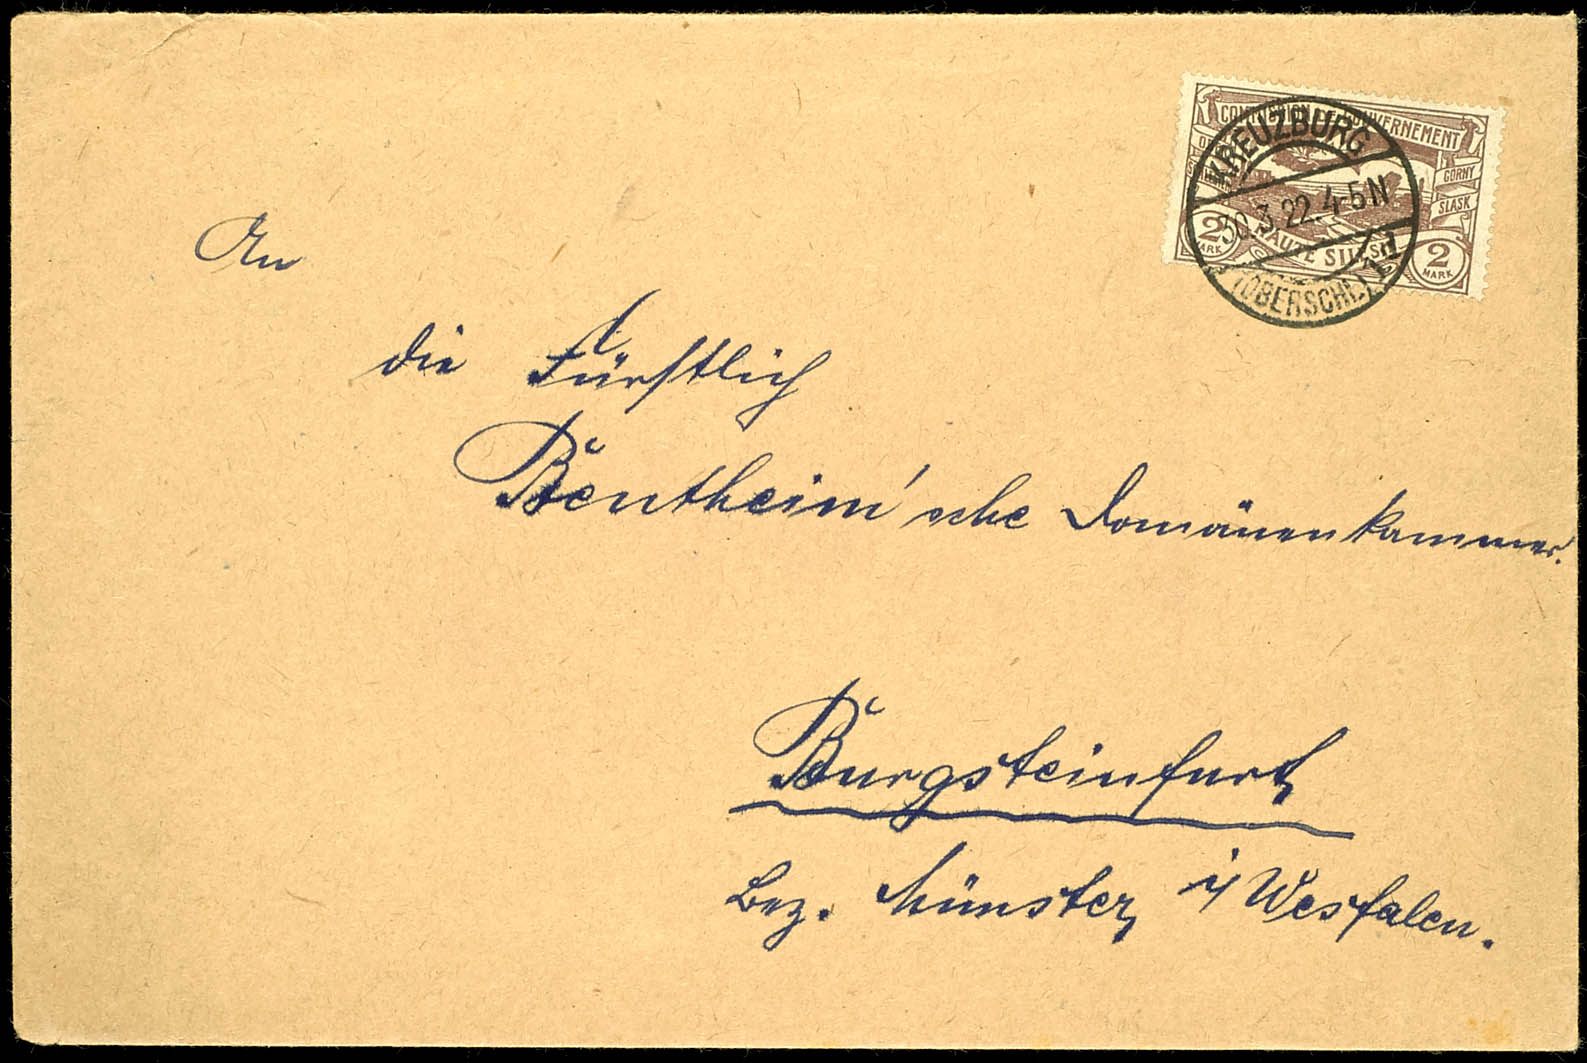 COMMISSION DE GOUVERNEMENT
GORNY
SLASK
2
MARK
HAUTE SILESIE
2
MARK
KREUZBURG
30.3.22.4-5N
(OBERSCHL.)
An
die Fürstlich
Bentheim'sche Domänenkammer.
Burgsteinfurt,
Bez. Münster, i/Westfalen.